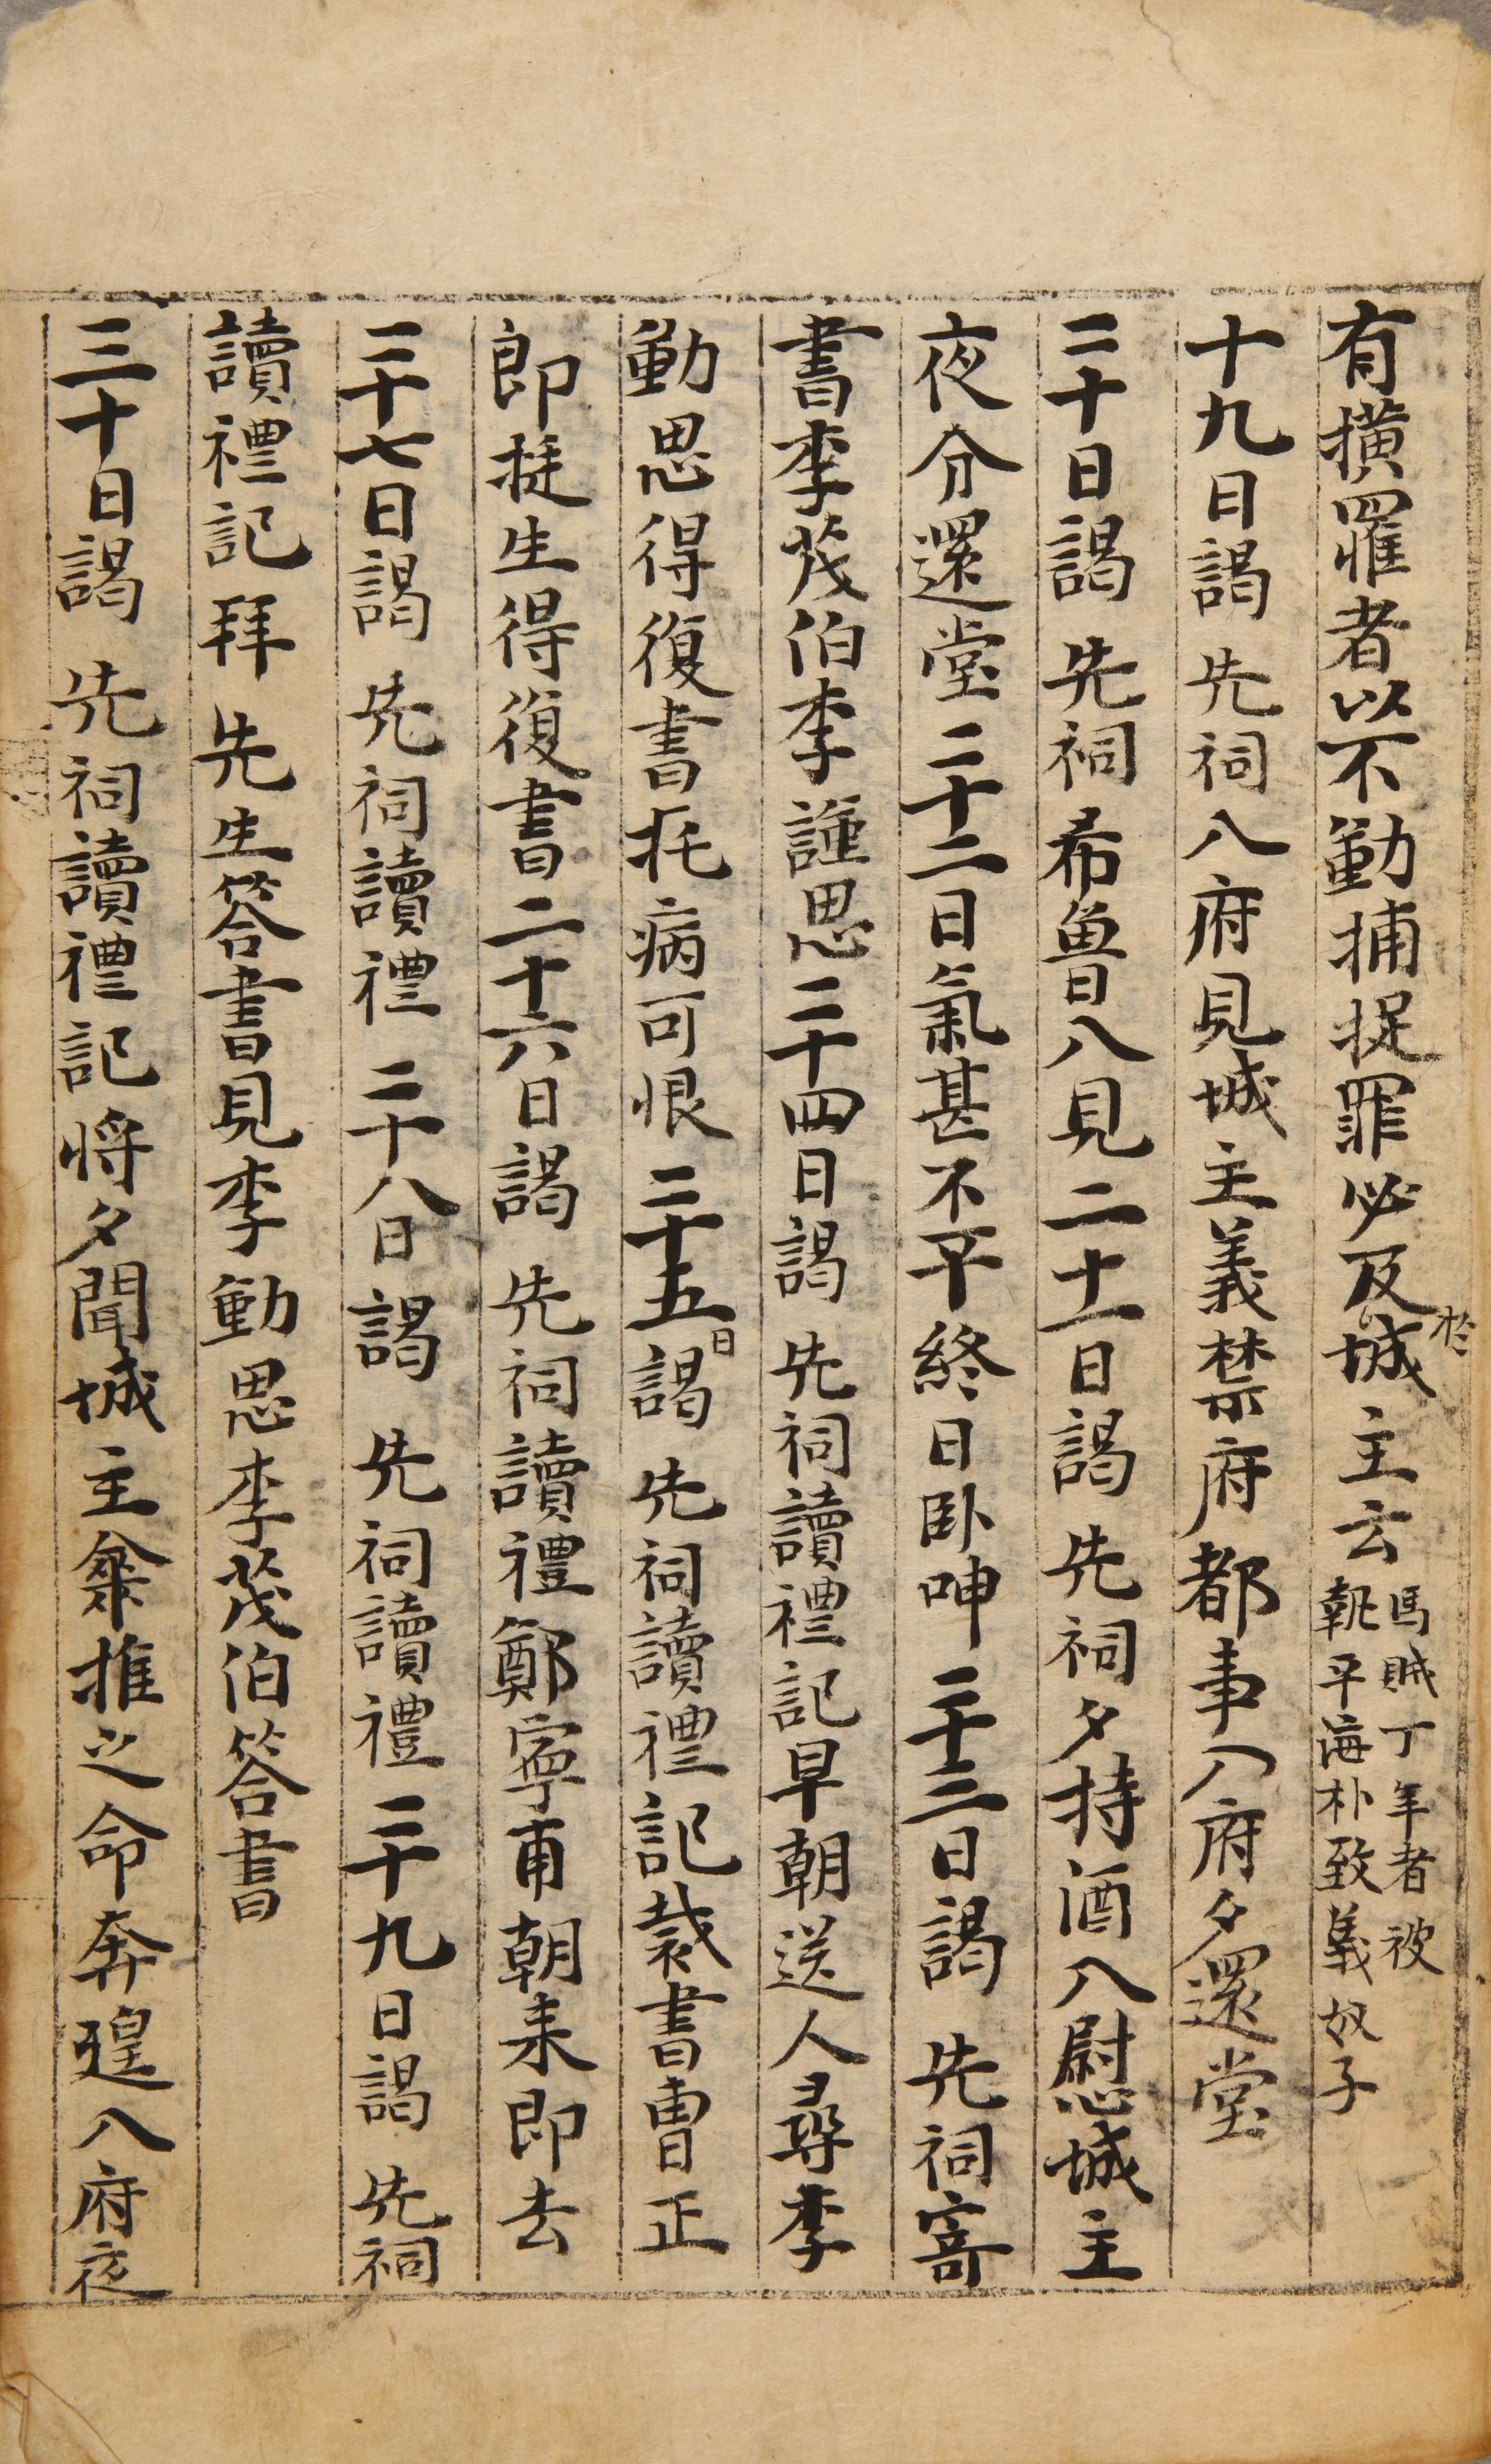 有橫罹者以不勤捕捉罪必及於城主云馬賊丁年者被執平海朴致義奴子
十九日謁 先祠入府見城主義禁府都事入府夕還堂
二十日謁 先祠希魯入見二十一日謁 先祠夕持酒入慰城主
夜分還堂二十二日氣甚不平終日臥呻二十三日謁 先祠寄
書李茂伯李謹思二十四日謁 先祠讀禮記早朝送人尋李
動思得復書托病可恨二十五日謁 先祠讀禮記裁書曺正
郎挺生得復書二十六日謁 先祠讀禮鄭寧甫朝来即去
二十七日謁 先祠讀禮二十八日謁 先祠讀禮二十九日謁 先祠
讀禮記拜 先生答書見李動思李茂伯答書
三十日謁 先祠讀禮記將夕聞城主推之命奔遑入府夜